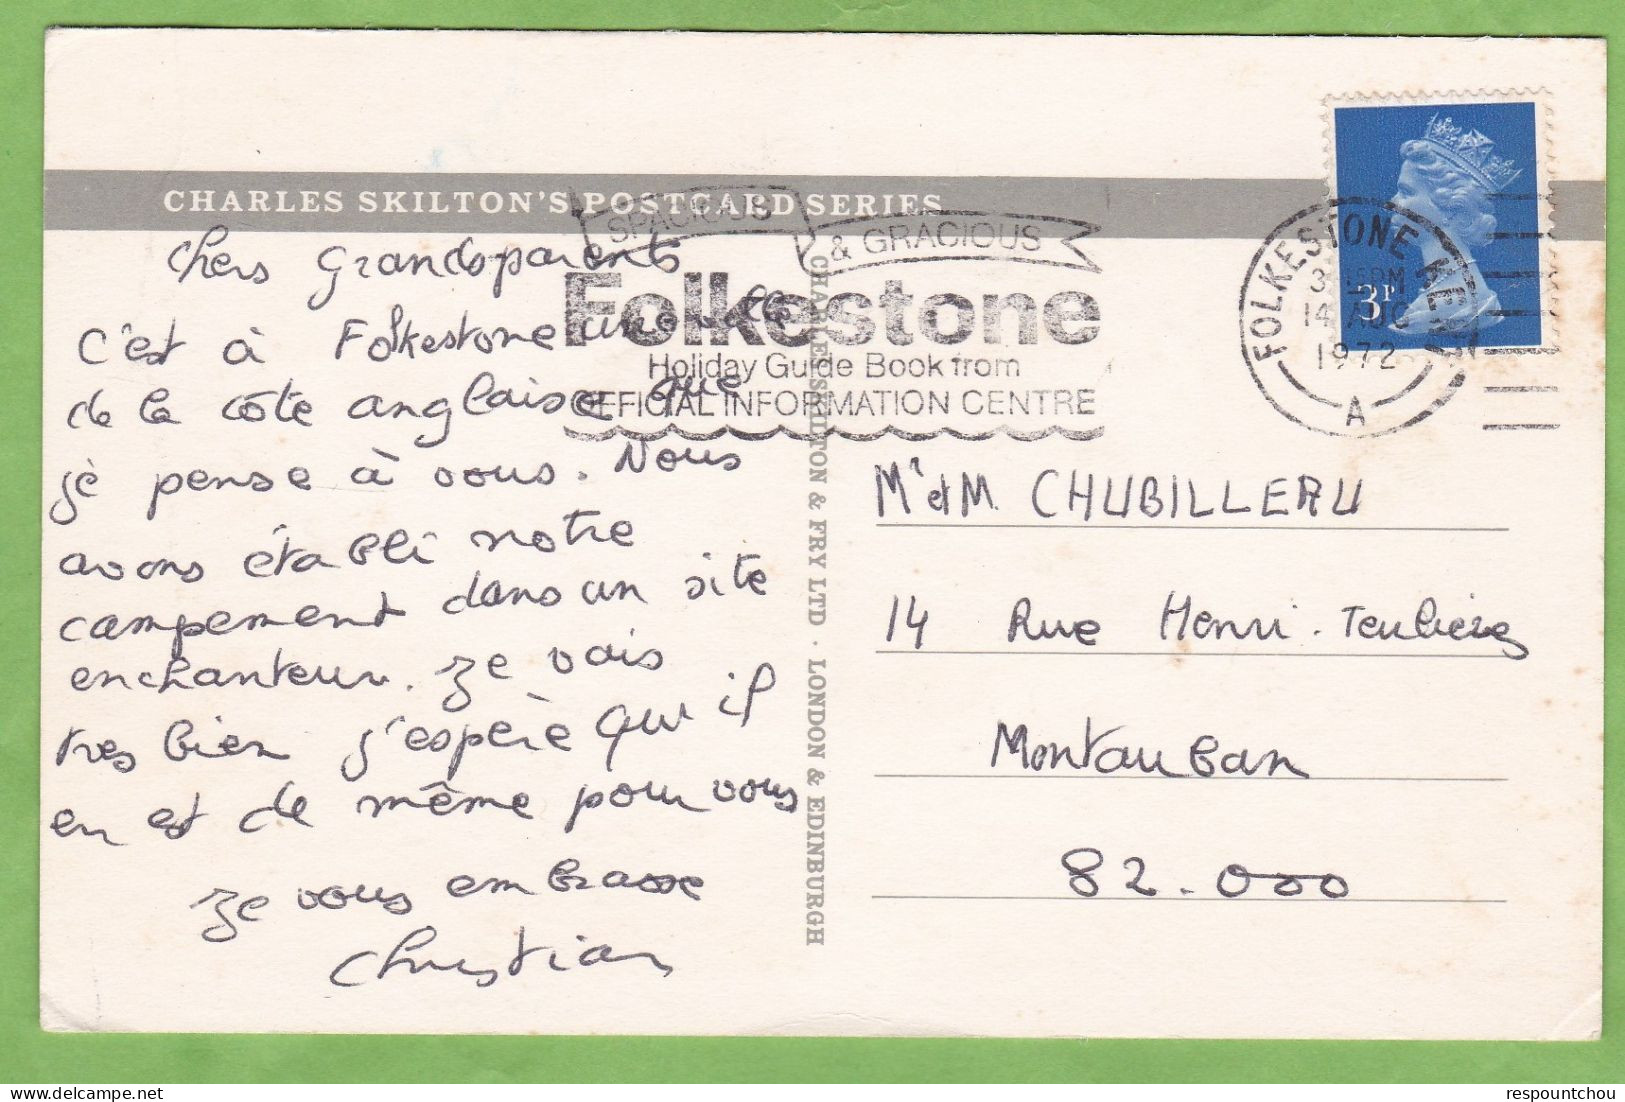 CHARLES SKILTON'S POSTCARD SERIES
SPACIOUS & GRACIOUS
Folkestone
Holiday Guide Book from
OFFICIAL INFORMATION CENTRE
FOLKESTONE KENT
3 15PM
14 AUG
1972
A
3P
Chers Grandsparents
C'est à Folkestone une ville
de la côte anglaise que
je pense à vous. Nous
avons établi notre
campement dans un site
enchanteur. Je vais
tres bien j'espère qu'il
en est de même pour vous
Je vous embrasse
Christian
CHARLES SKILTON & FRY LTD · LONDON & EDINBURGH
Mr et M CHUBILLEAU
14 Rue Henri. Teulières
Montauban
82.000
respountchou